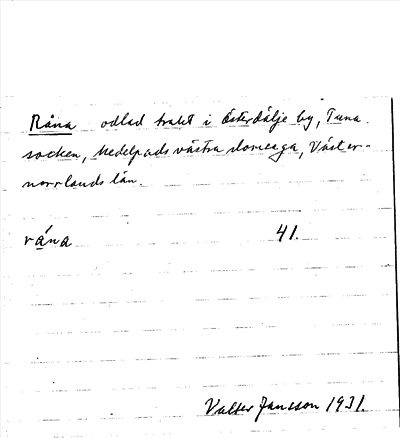 Råna odlad trakt i Österdälje by, Tuna
socken, Medelpads västra domsaga, Väster-
norrlands län.
råna 41.
Valter Jansson 1931.